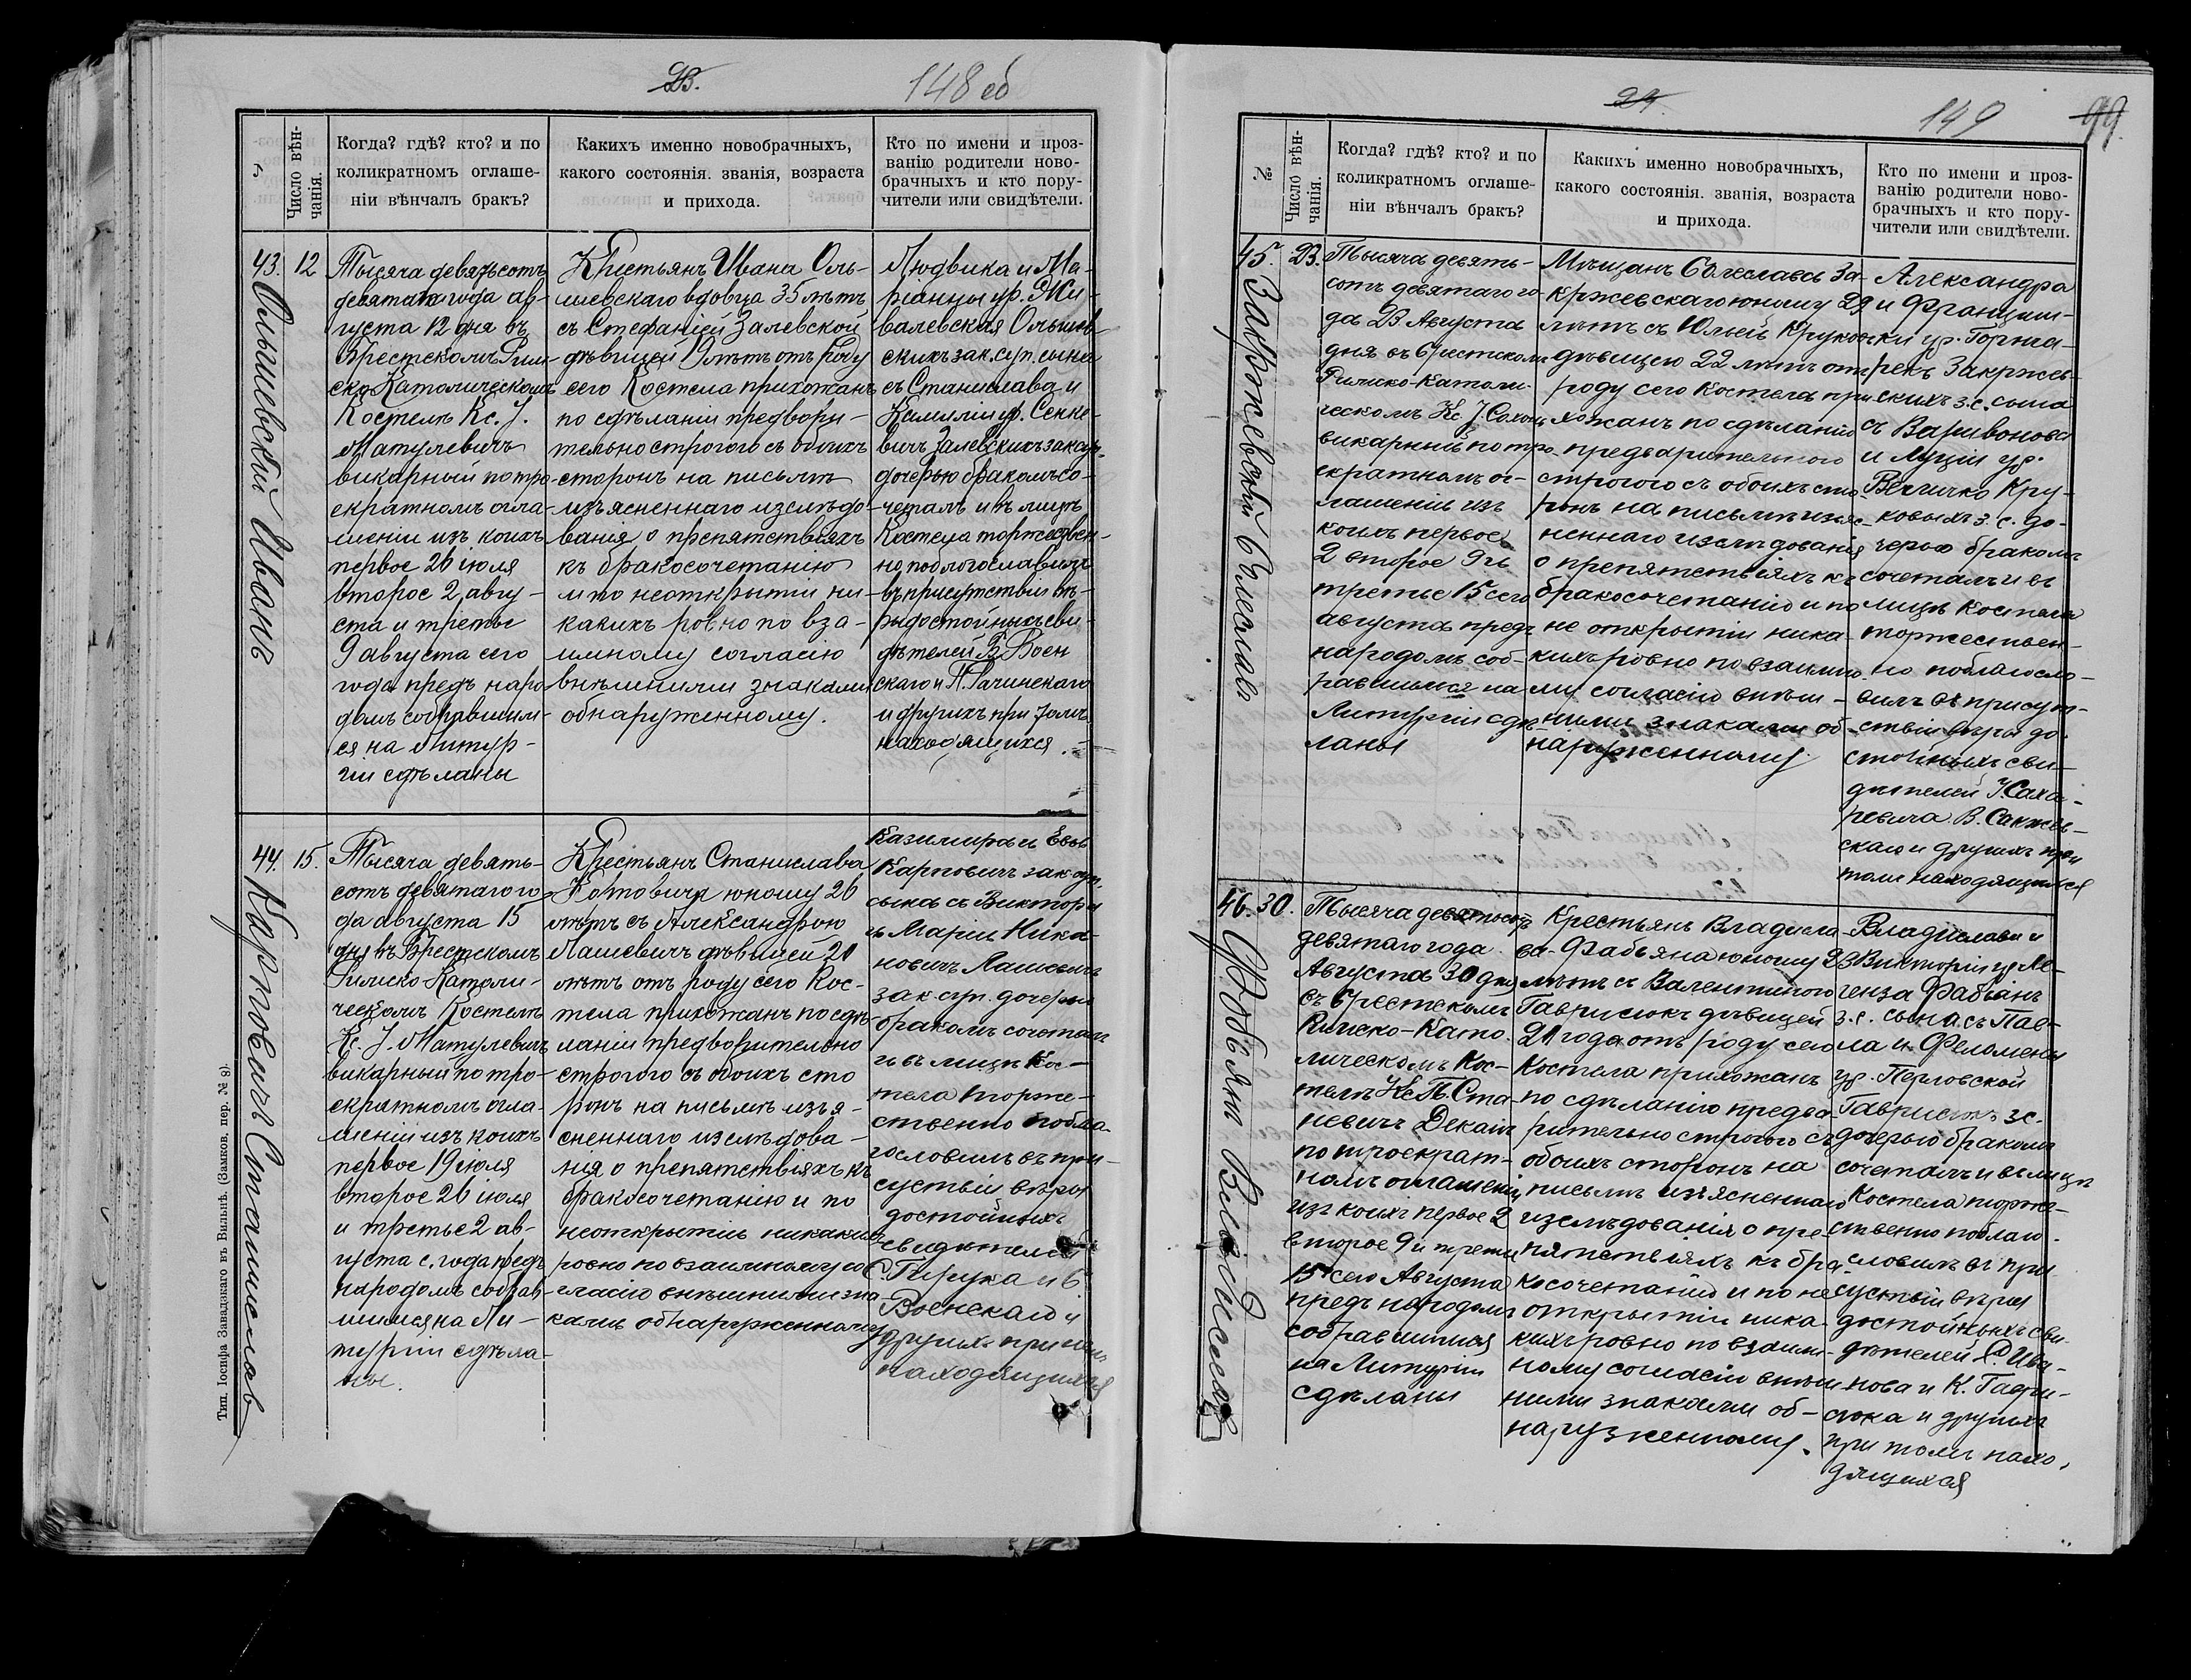 23.
148 об
№
Число вѣн-
чанія.
Когда? гдѣ? кто? и по
коликратномъ оглаше-
ніи вѣнчалъ бракъ?
Какихъ именно новобрачныхъ,
какого состоянія. званія, возраста
и прихода.
Кто по имени и проз-
ванію родители ново-
брачныхъ и кто пору-
чители или свидѣтели.
43.
12
Ольшевский Иванъ
Тысяча девятьсотъ
девятаго года ав-
густа 12 дня въ
Брестскомъ Рим-
ско Католическомъ
Костелѣ Кс. J.
Матулевичъ
викарный по тро-
екратномъ огла-
шеніи изъ коихъ
первое 26 іюля
второе 2 авгу-
ста и третье
9 августа сего
года предъ наро
домъ собравшим-
ся на Литур-
гіи сдѣланы
Крестьянъ Ивана Оль-
шевскаго вдовца 35 лѣтъ
съ Стефаніей Залевской
дѣвицей лѣтъ отъ роду
сего Костела прихожанъ
по сдѣланіи предвори-
тельно строгого съ обоихъ
сторонъ на письмѣ
изъясненнаго изслѣдо-
ванія о препятствіяхъ
къ бракосочетанію
и по неоткрытіи ни
какихъ ровно по вза-
имному согласію
внѣшними знаками
обнаруженному.
Людвика и Ма-
ріанны ур. Жи-
валевская Ольшев-
скихъ зак. суп. сына
съ Станислава и
Камиліи ур. Сенке-
вичъ Залевскихъ зак. суп.
дочерью бракомъ со-
четалъ и въ лицѣ
Костела торжествен-
но поблогославилъ
въ присутствіи вѣ-
рыдостойныхъ сви-
дѣтелей В. Воен
скаго и П. Рачинскаго
и другихъ при томъ
находящихся.
44.
15.
Карповичъ Станиславъ
Тысяча девять-
сотъ девятаго го-
да августа 15
дня въ Брестскомъ
Римско Католи-
ческомъ Костелѣ
Кс. J. Матулевичъ
викарный по тро-
екратномъ огла-
шеніи изъ коихъ
первое 19 іюля
второе 26 іюля
и третье 2 ав-
густа с. года предъ
народомъ собрав-
шимся на Ли-
тургіи сдѣла-
ны.
Крестьянъ Станислава
юношу 26
лѣтъ съ Александрою
Лашевичъ дѣвицей 21
лѣтъ отъ роду сего Кос-
тела прихожанъ по сдѣ-
ланіи предворительно
строгого съ обоихъ сто
ронъ на письмѣ изъя-
сненнаго изслѣдова-
нія о препятствіяхъ къ
бракосочетанію и по
неоткрытіи никакихъ
ровно по взаимному со
гласію внѣшними зна
ками обнаруженному
Казимира и Евы
Карповичъ зак. суп.
сына съ Виктора
и Маріи Ника-
новичъ Лашевичъ
зак. суп. дочерью
бракомъ сочеталъ
и въ лицѣ Кос-
тела торже-
ственно побла-
гословилъ въ при-
сутствіи вѣры
достойныхъ
свидѣтелей
С. Гирука и В.
Военскаго и
другихъ при томъ
находящихся
Тип. Іосифа Завадзкаго въ Вильнѣ. (Замков. пер. № 8).
24.
149
99.
№
Число вѣн-
чанія.
Когда? гдѣ? кто? и по
коликратномъ оглаше-
ніи вѣнчалъ бракъ?
Какихъ именно новобрачныхъ,
какого состоянія. званія, возраста
и прихода.
Кто по имени и проз-
ванію родители ново-
брачныхъ и кто пору-
чители или свидѣтели.
45.
23.
Закржевскій Болеславъ
Тысяча девять-
сотъ девятаго го-
да 23 Августа
дня въ Брестскомъ
Римско-Католи-
ческомъ Кс. J.
викарный по тро-
екратномъ ог-
лашеніи изъ
коихъ первое
2 второе 9 и
третье 15 сего
августа предъ
народомъ соб-
равшимся на
Литургіи сдѣ-
ланы
Мѣщанъ Болеслава За-
кржевскаго юношу 29
лѣтъ съ Юліей Круков
дѣвицею 22 лѣтъ отъ
роду сего Костела при
хожанъ по сдѣланію
предварительного
строгого съ обоихъ сто-
ронъ на письмѣ изъяс-
неннаго изслѣдованія
о препятствіяхъ къ
бракосочетанію и по
не открытіи ника-
кихъ ровно по взаимно-
му согласію внѣш-
ними знаками об-
наруженному
Александра
и Франциш-
ки ур. Горна-
рекъ Закржев-
скихъ з. с. сына
съ Варивонова
и Луціи ур.
Величко Кру-
ковыхъ з. с. до-
черью бракомъ
сочеталъ и въ
лицѣ Костела
торжествен-
но поблагосло-
вилъ въ присут-
ствіи вѣры до-
стойныхъ сви-
дѣтелей Саха-
ревича В. Сакжев-
скаго и другихъ при
томъ находящихся
46.
30.
Фабіянъ Владиславъ
Тысяча девятьсотъ
девятаго года
Августа 30 дня
въ Брестскомъ
Римско-Като-
лическомъ Кос-
телѣ Кс. П. Ста-
невичъ Деканъ
по троекрат-
номъ оглашеніи
изъ коихъ первое 2
второе 9 и третье
15 сего Августа
предъ народомъ
собравшимися
на Литургіи
сдѣланы
Крестьянъ Владисла-
ва Фабьяна юношу 23
лѣтъ съ Валентиною
Гаврисюкъ дѣвицей
21 года отъ роду сего
Костела прихожанъ
по сдѣланію предва-
рительно строгого съ
обоихъ сторонъ на
письмѣ изъясненнаго
изслѣдованія о пре-
пятствіяхъ къ бра-
косочетанію и по не
открытіи ника-
кихъ ровно по взаим-
ному согласію внѣш
ними знаками об-
наруженному.
Владислава и
Викторіи ур. Ле-
генза Фабіанъ
з. с. сына съ Пав-
ла и Феломены
ур. Перловской
Гаврисюкъ з с.
дочерью бракомъ
сочеталъ и въ лицѣ
Костела торже-
ственно поблаго-
словилъ въ при
сутствіи вѣры
достойныхъ сви-
дѣтелей Ива-
нова и К. Гаври-
сюка и другихъ
при томъ нахо-
дящихся